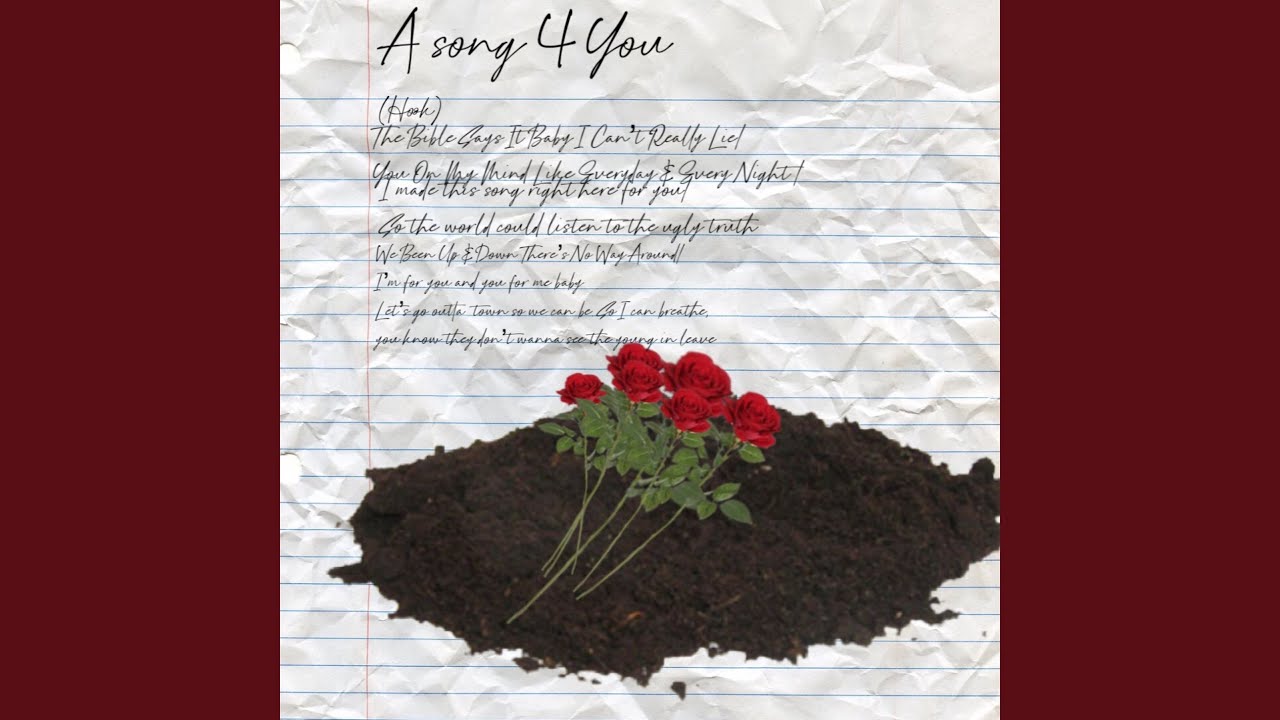 A song 4 You
(Hook)
The Bible Says It Baby I Can't Really Lie/
You On My Mind Like Everyday & Every Night /
I made this song right here for you/
So the world could listen to the ugly truth
We Been Up & Down There's No Way Around/
I'm for you and you for me baby
Let's go outta town so we can be So I can breathe,
you know they don't wanna see the young in leave